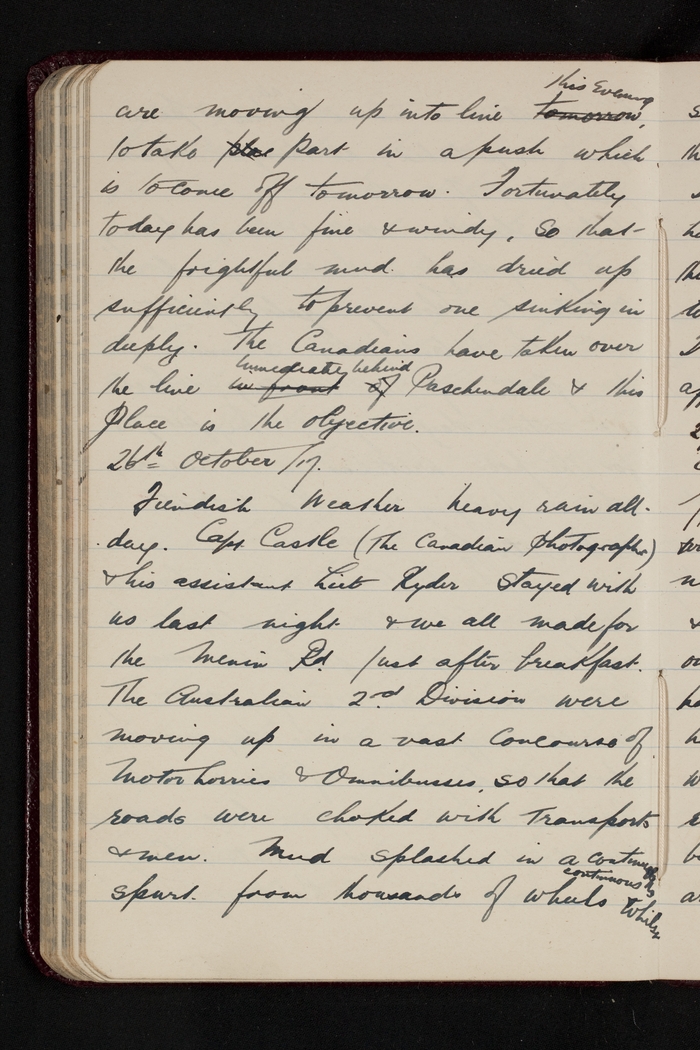 this Evening
are moving up into line tomorrow
to take place part in a push which
is to come off tomorrow. Fortunately
today has been fine & windy, so that
the frightful mud has dried up
sufficiently to prevent one sinking in
deeply. The Canadians have taken over
immediately behind
the line in front of Paschendale & this
place is the objective.
26th October /17.
Fiendish Weather heavy rain all
day. Capt Castle (The Canadian Photographer)
& his assistant Lieut Ryder stayed with
us last night & we all made for
the Menin Rd just after breakfast.
The Australian 2nd Division were
moving up in a vast concourse of
Motor Lorries & Omnibusses, so that the
roads were choked with Transports
& men. Mud splashed in a
continuous
spurt from thousands of wheels whilst